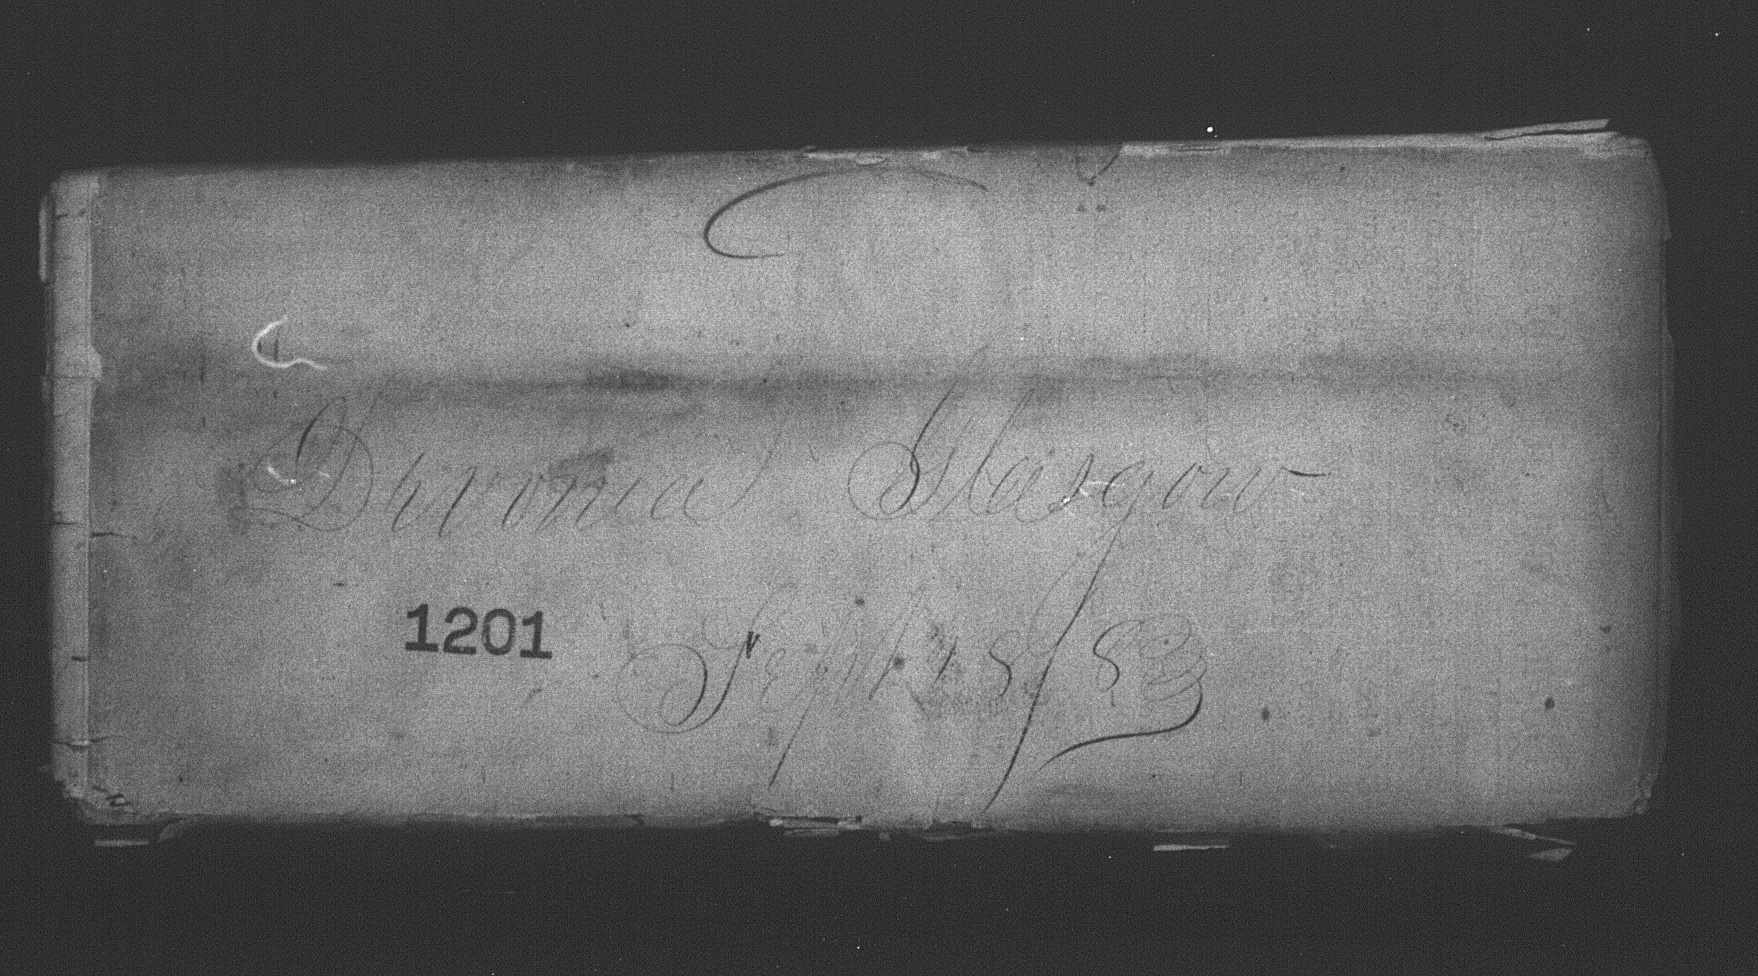 Devonia Glasgow
1201
Sept 18/83